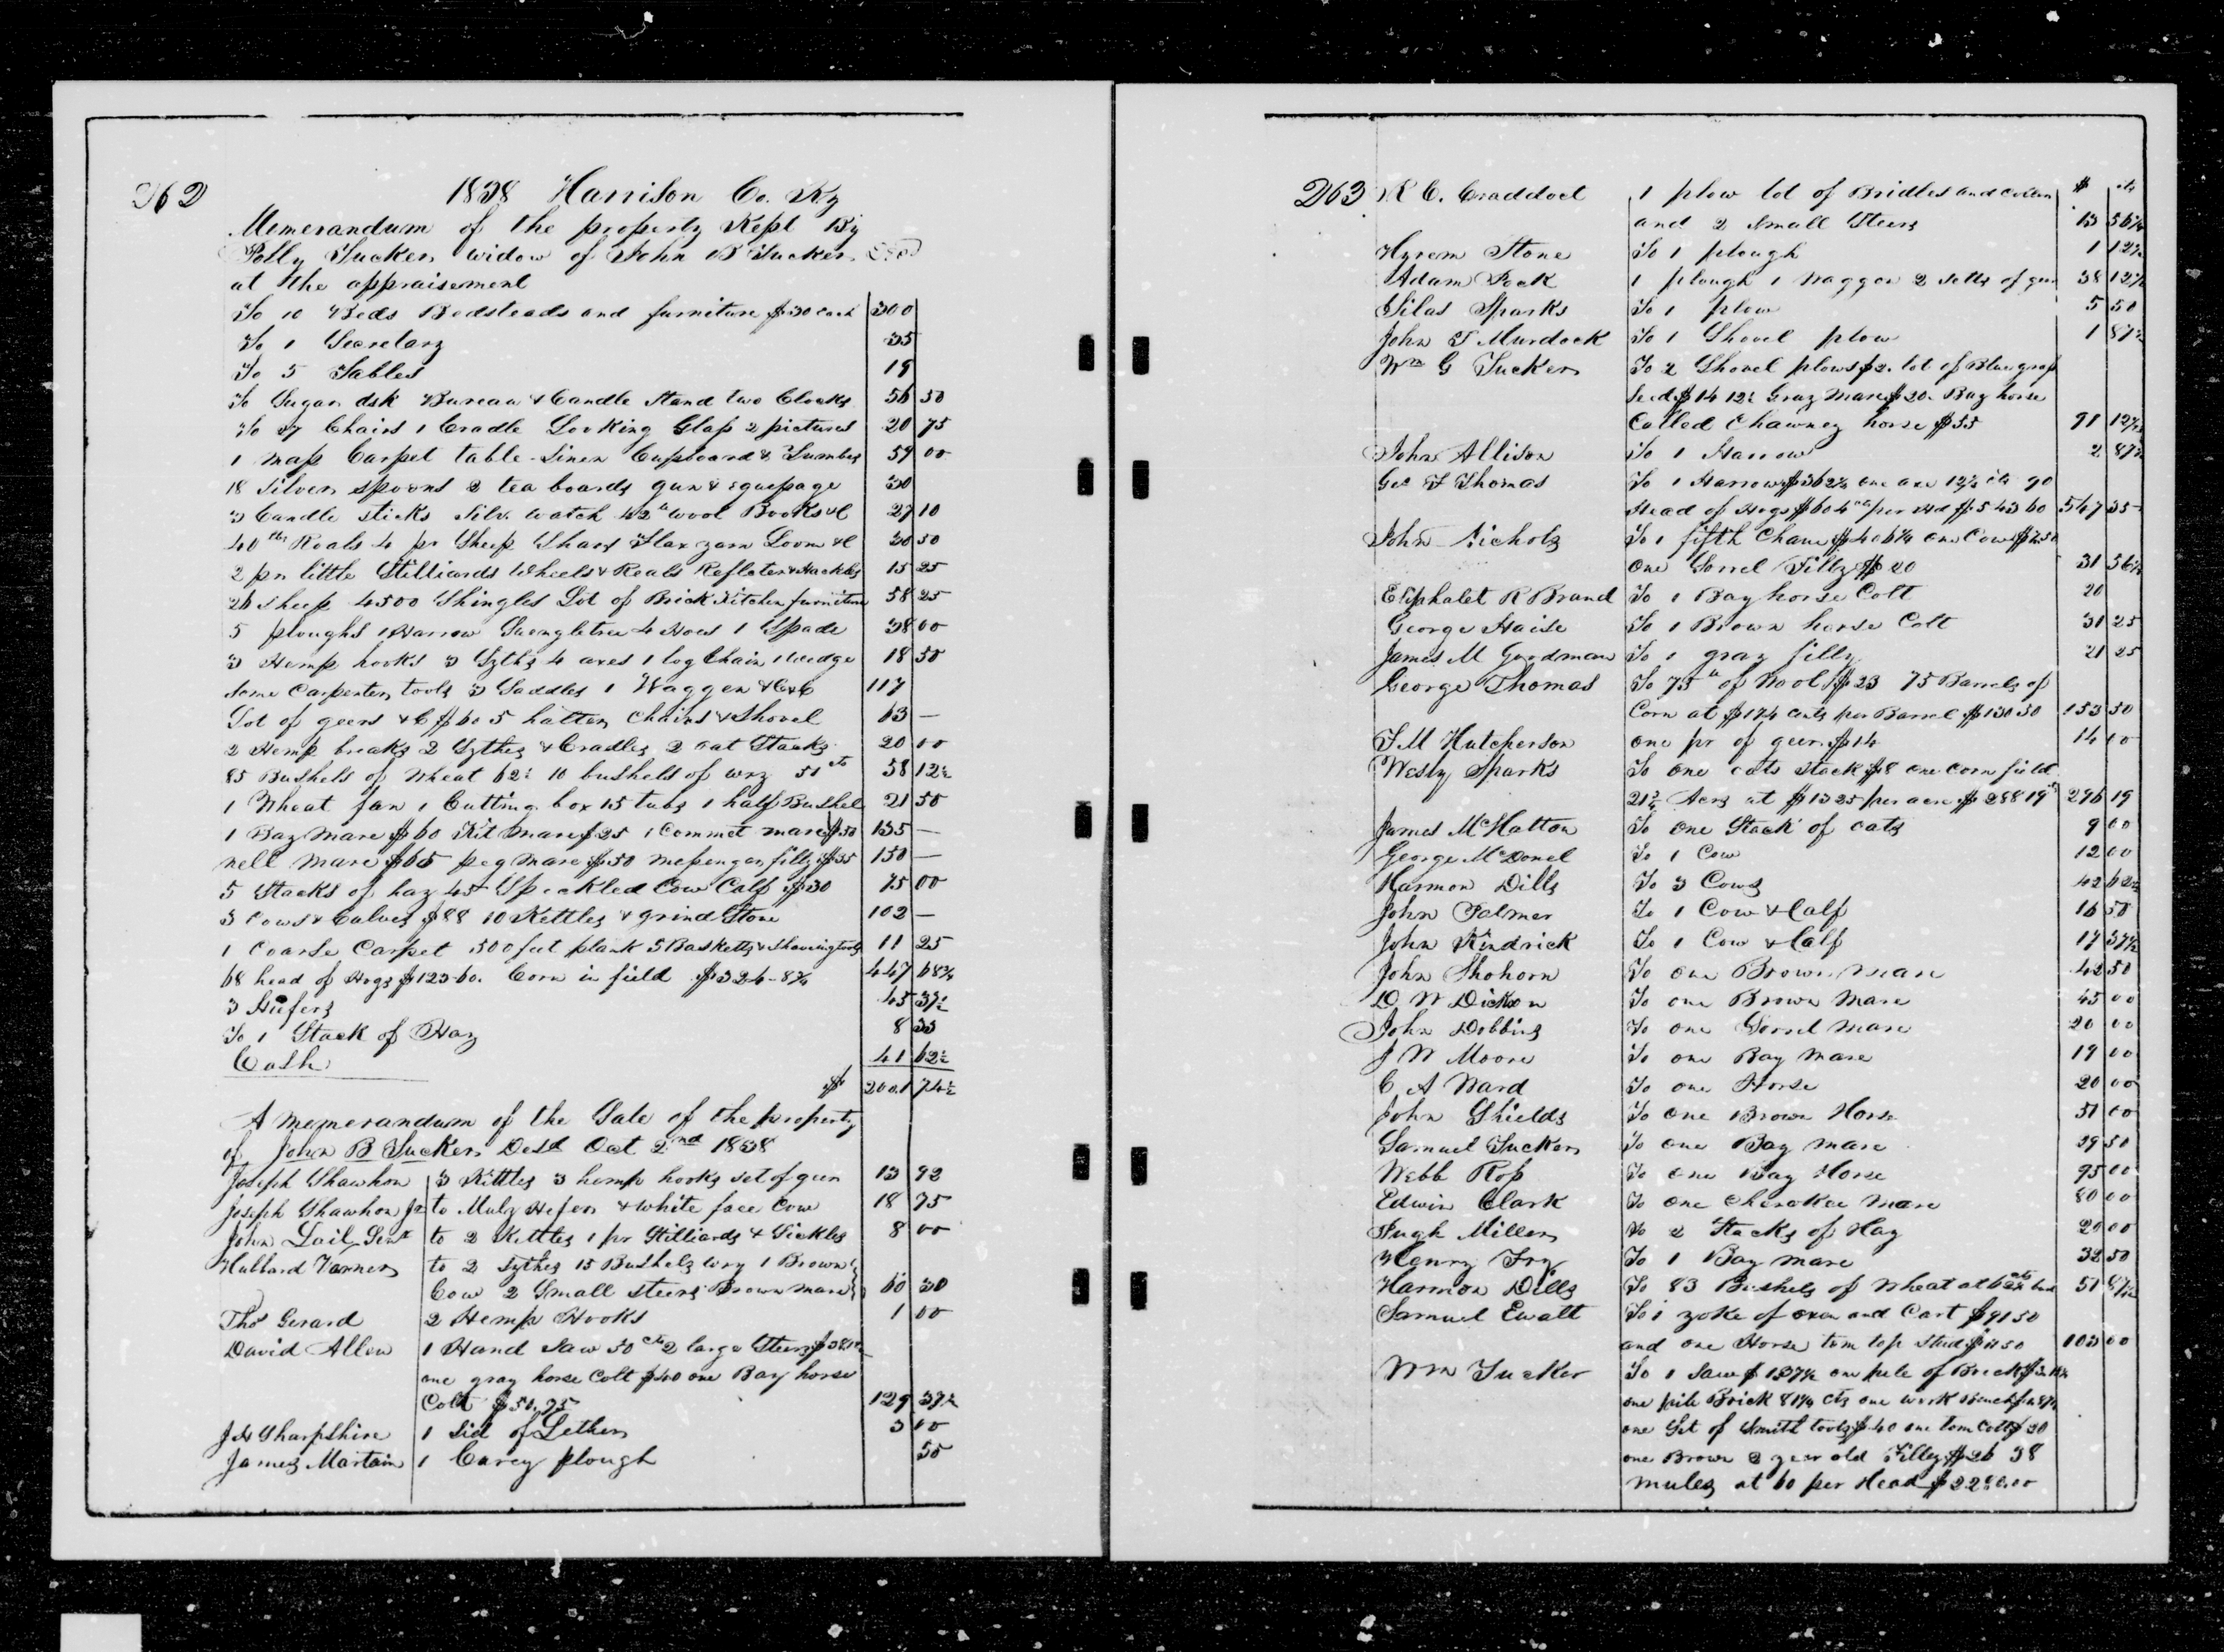 262
1838 Harrison Co. Ky
Memorandum of the property Kept By
Polly Tucker widow of John B Tucker Decd
at the appraisement
To 10 Beds Bedsteads and furniture $30 each 300
To 1 Secretary 35
To 5 Tables 19
To Sugar dsk Bureau & Candle Stand two Clocks 56 50
To 27 Chairs 1 Cradle Looking Glass 2 pictures 20 75
1 Map Carpet table-Linen Cupboard & 59 00
18 Silver spoons 3 tea boards gun & equepage 30
3 Candle sticks Silv. watch 42 lb wool Books &C 27 10
40 lbs 4 pr Sheep Shars Flax yarn Loom &C 30 50
2 pr little Stilliards Wheels & Reals Reflater & Hackles 15 25
26 Sheep 4500 Shingles Lot of Brick Kitchen furniture 58 25
5 ploughs 1 Harrow Swengletree 4 Hoes 1 Spade 38 00
3 Hemp hooks 3 Sythes 4 axes 1 log Chain 1 wedge 18 50
Some Carpenters tools 3 Saddles 1 Waggon &C&C 117
Lot of geers &C $60 5 halter chains & Shovel 63 —
2 Hemp breaks 2 Sythes & Cradles 2 oat Stacks 20 00
85 Bushels of Wheat 62½ 10 bushels of wry 50 cts 58 12½
1 Wheat fan 1 Cutting box 15 tubs 1 half Bushel 21 50
1 Bay Mare $60 Kit Mare $25 1 Commet mare $50 135 —
nell Mare $65 peg Mare $50 messenger filly $35 150 —
5 Stacks of hay 45 Speckled Cow Calf $30 75 00
3 Cows & Calves $88 10 Kettles & grind Stone 102 —
1 Coarse Carpet 500 feet plank 5 Basketts & Shaving tools 11 25
68 head of Hogs $123-60. Corn in field $324-8¾ 447 68¾
3 Heifers 45 37½
To 1 Stack of Hay 8 33
Cash 41 62½
$ 2001 74½
A memorandum of the Sale of the property
of John B Tucker Desd Oct 2nd 1838
Joseph Shawhon 3 Kittles 3 hemp hooks set of geer 13 92
Joseph Shawhon Jr to Muly Hefer & white face Cow 18 75
John Lail Senr to 2 Kettles 1 pr Stilliards & Sickles 8 00
Hubbard Varner to 2 Sythes 15 Bushels wry 1 Brown
Cow 2 Small steers Brown mare 60 30
Thos Gerard 2 Hemp Hooks 1 00
David Allen 1 Hand Saw 50 cts 2 large Steers
one gray horse Colt $40 one Bay horse
Colt $50.75 129 37½
J H Sharpshire 1 Sid of Lether 3 00
James Martain 1 Carey plough 50
263
$ cts
R C. Craddock 1 plow lot of Bridles and
and 2 Small Steers 13 56¼
Hyrem Stone To 1 plough 1 12½
Adam Pock 1 plough 1 Waggon 2 setts of geer 38 12½
Silas Sparks To 1 plow 5 50
John T Murdock To 1 Shovel plow 1 87½
Wm G Tucker To 2 Shovel plows $2. lot of Blue grass
Seed $14 12½ Gray Mare $20. Bay horse
Called Chawney horse $55 91 12½
John Allison To 1 Harrow 2 87½
Geo F Thomas To 1 Harrow $3 62½ one axe 12½ cts 90
Head of Hogs $604 cts per Hd $543 60 567 35
John Nichols To 1 fifth Chane $4 06¼ one Cow $7.50
one Sorrel Filly $20 31 56¼
Eliphalet R Brand To 1 Bay horse Colt 20
George Haise To 1 Brown horse Colt 31 25
James M Goodman To 1 gray filly 21 25
George Thomas To 75 lb of Wool $23 75 Barrels of
Corn at $174 cents per Barrel $130 50 153 50
T.M Hutcherson one pr of geer. $14 14 00
Wesly Sparks To one oats stack $8 one corn field
21¾ Acrs at $13 25 per acre $288 19 296 19
James McHatton To one Stack of oats 9 00
George McDonel To 1 Cow 12 00
Harmon Dills To 3 Cows 42 62½
John Palmer To 1 Cow & Calf 16 50
John Kindrick To 1 Cow & Calf 17 37½
John Shohorn To one Brown mare 42 50
D W Dickson To one Brown Mare 45 00
John Dobbins To one Sorrel mare 20 00
J W Moore To one Bay Mare 19 00
C A Ward To one Horse 20 00
John Shields To one Brown Horse 51 00
Samuel Tucker To one Bay mare 39 50
Webb Ross To one Bay Horse 95 00
Edwin Clark To one Cherokee mare 80 00
Hugh Miller To 2 Stacks of Hay 20 00
Henry Fry To 1 Bay mare 32 50
Harmon Dills To 83 Bushels of Wheat at 62½ cts 51 87½
Samuel Ewalt To 1 yoke of oxen and Cart $91 50
and one Horse tom top Stud $11 50 103 00
Wm Tucker To 1 Saw $1 37½ one pile of Brick
one pile Brick 81¼ cts one work Bench
one Set of Smith tools $40 one tom Colt $30
one Brown 2 year old Filley $26 38
mules at 60 per Head $2280.00